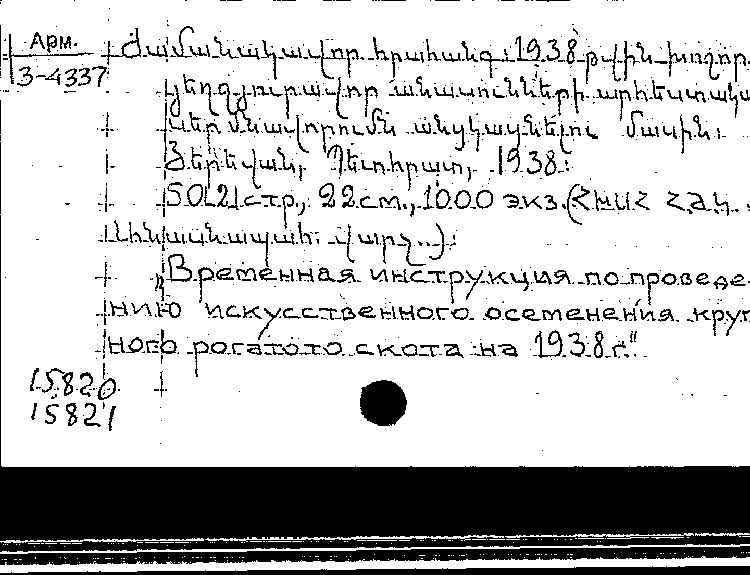 Арм.
З-4337
Ժամանակավոր հրահանգ 1938 թ. վին խոշոր
յեղջյուրավոր անասունների արհեստակա
սերմնավորումն անցկացնելու մասին։
Յերեվան, Պետհրատ, 1938։
50[2] стр., 22 см., 1000 экз. (ՀԽՍՀ ՀՋԿ.
Անասնապահ. վարչ..)։
„Временная инструкция по проведе-
нию искусственного осеменения круп
ного рогатото скота на 1938 г."
15820
15821